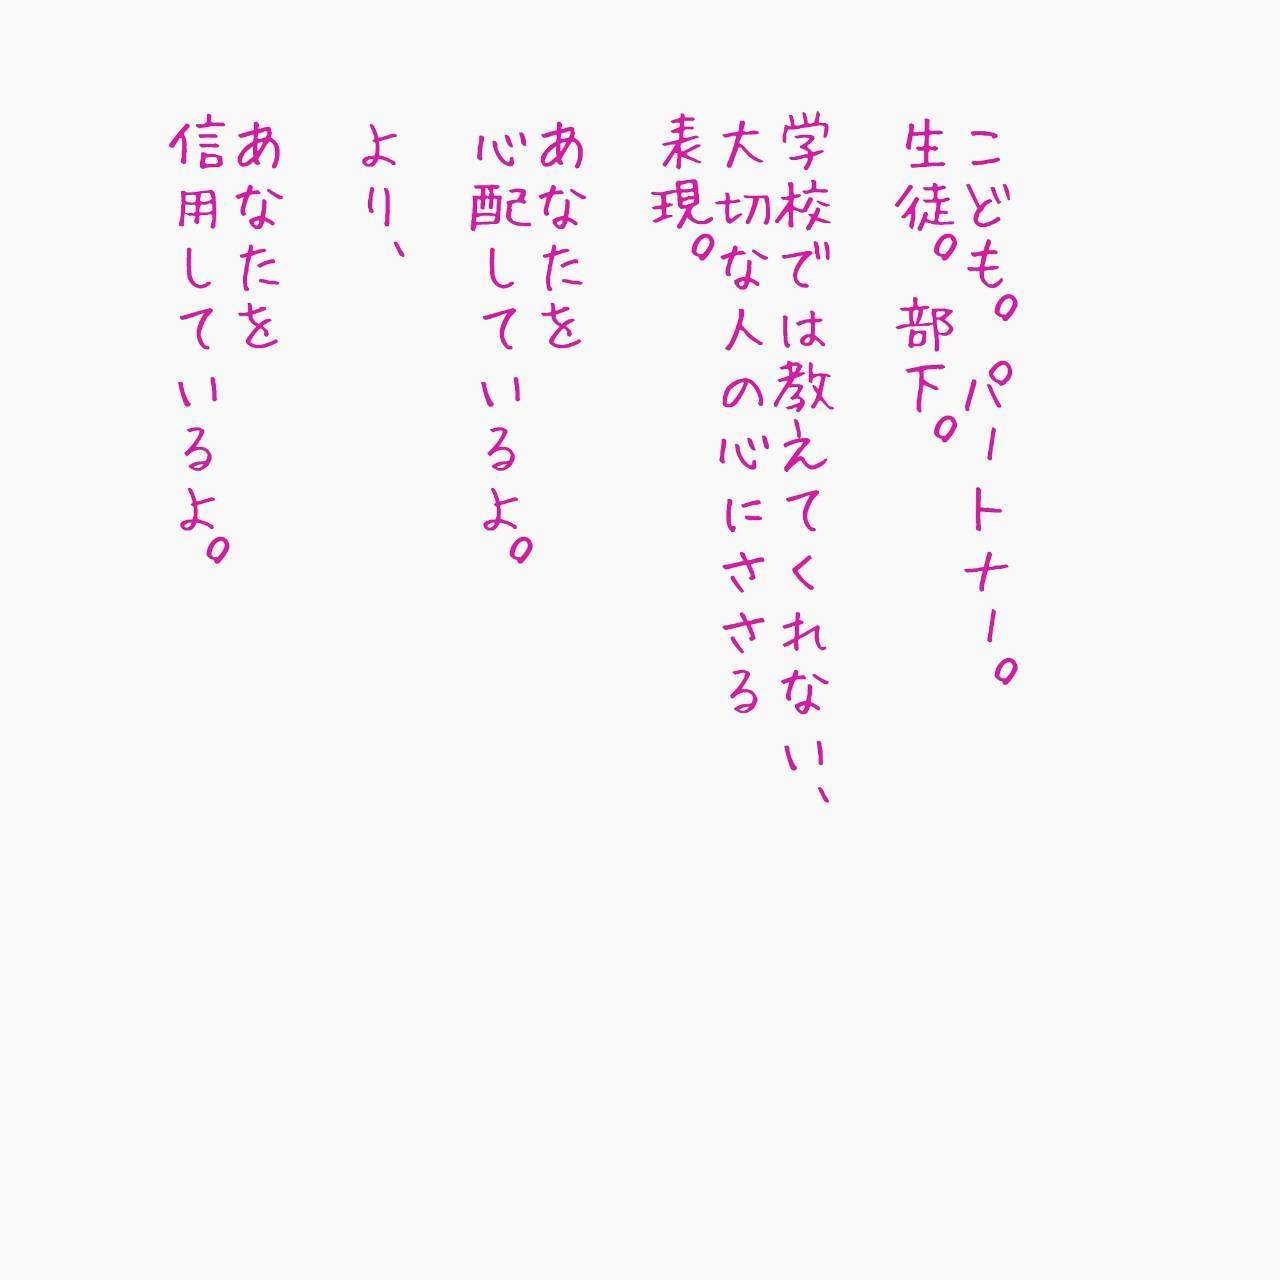 こども。パートナー。
生徒。部下。
学校では教えてくれない、
大切な人の心にささる
表現。
あなたを
心配しているよ。
より、
あなたを
信用しているよ。